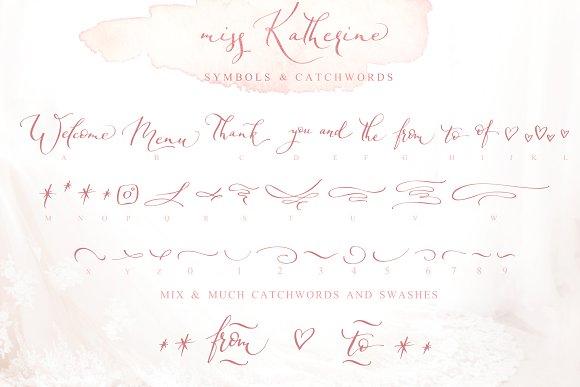 miss Katherine
SYMBOLS & CATCHWORDS
Welcome Menu Thank you and the from to of
A B C D E F G H I J K L
M N O P Q R S T U V W
X Y Z 0 1 2 3 4 5 6 7 8 9
MIX & MUCH CATCHWORDS AND SWASHES
from to